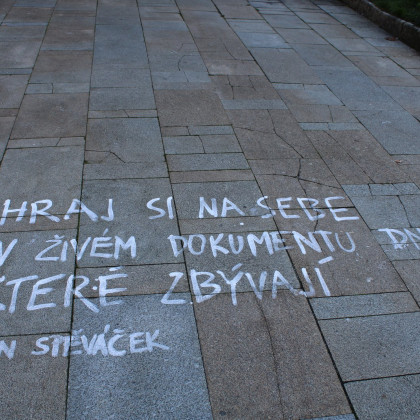 HRAJ SI NA SEBE
V ŽIVÉM DOKUMENTU
KTERÉ ZBÝVAJÍ
N STĚVÁČEK